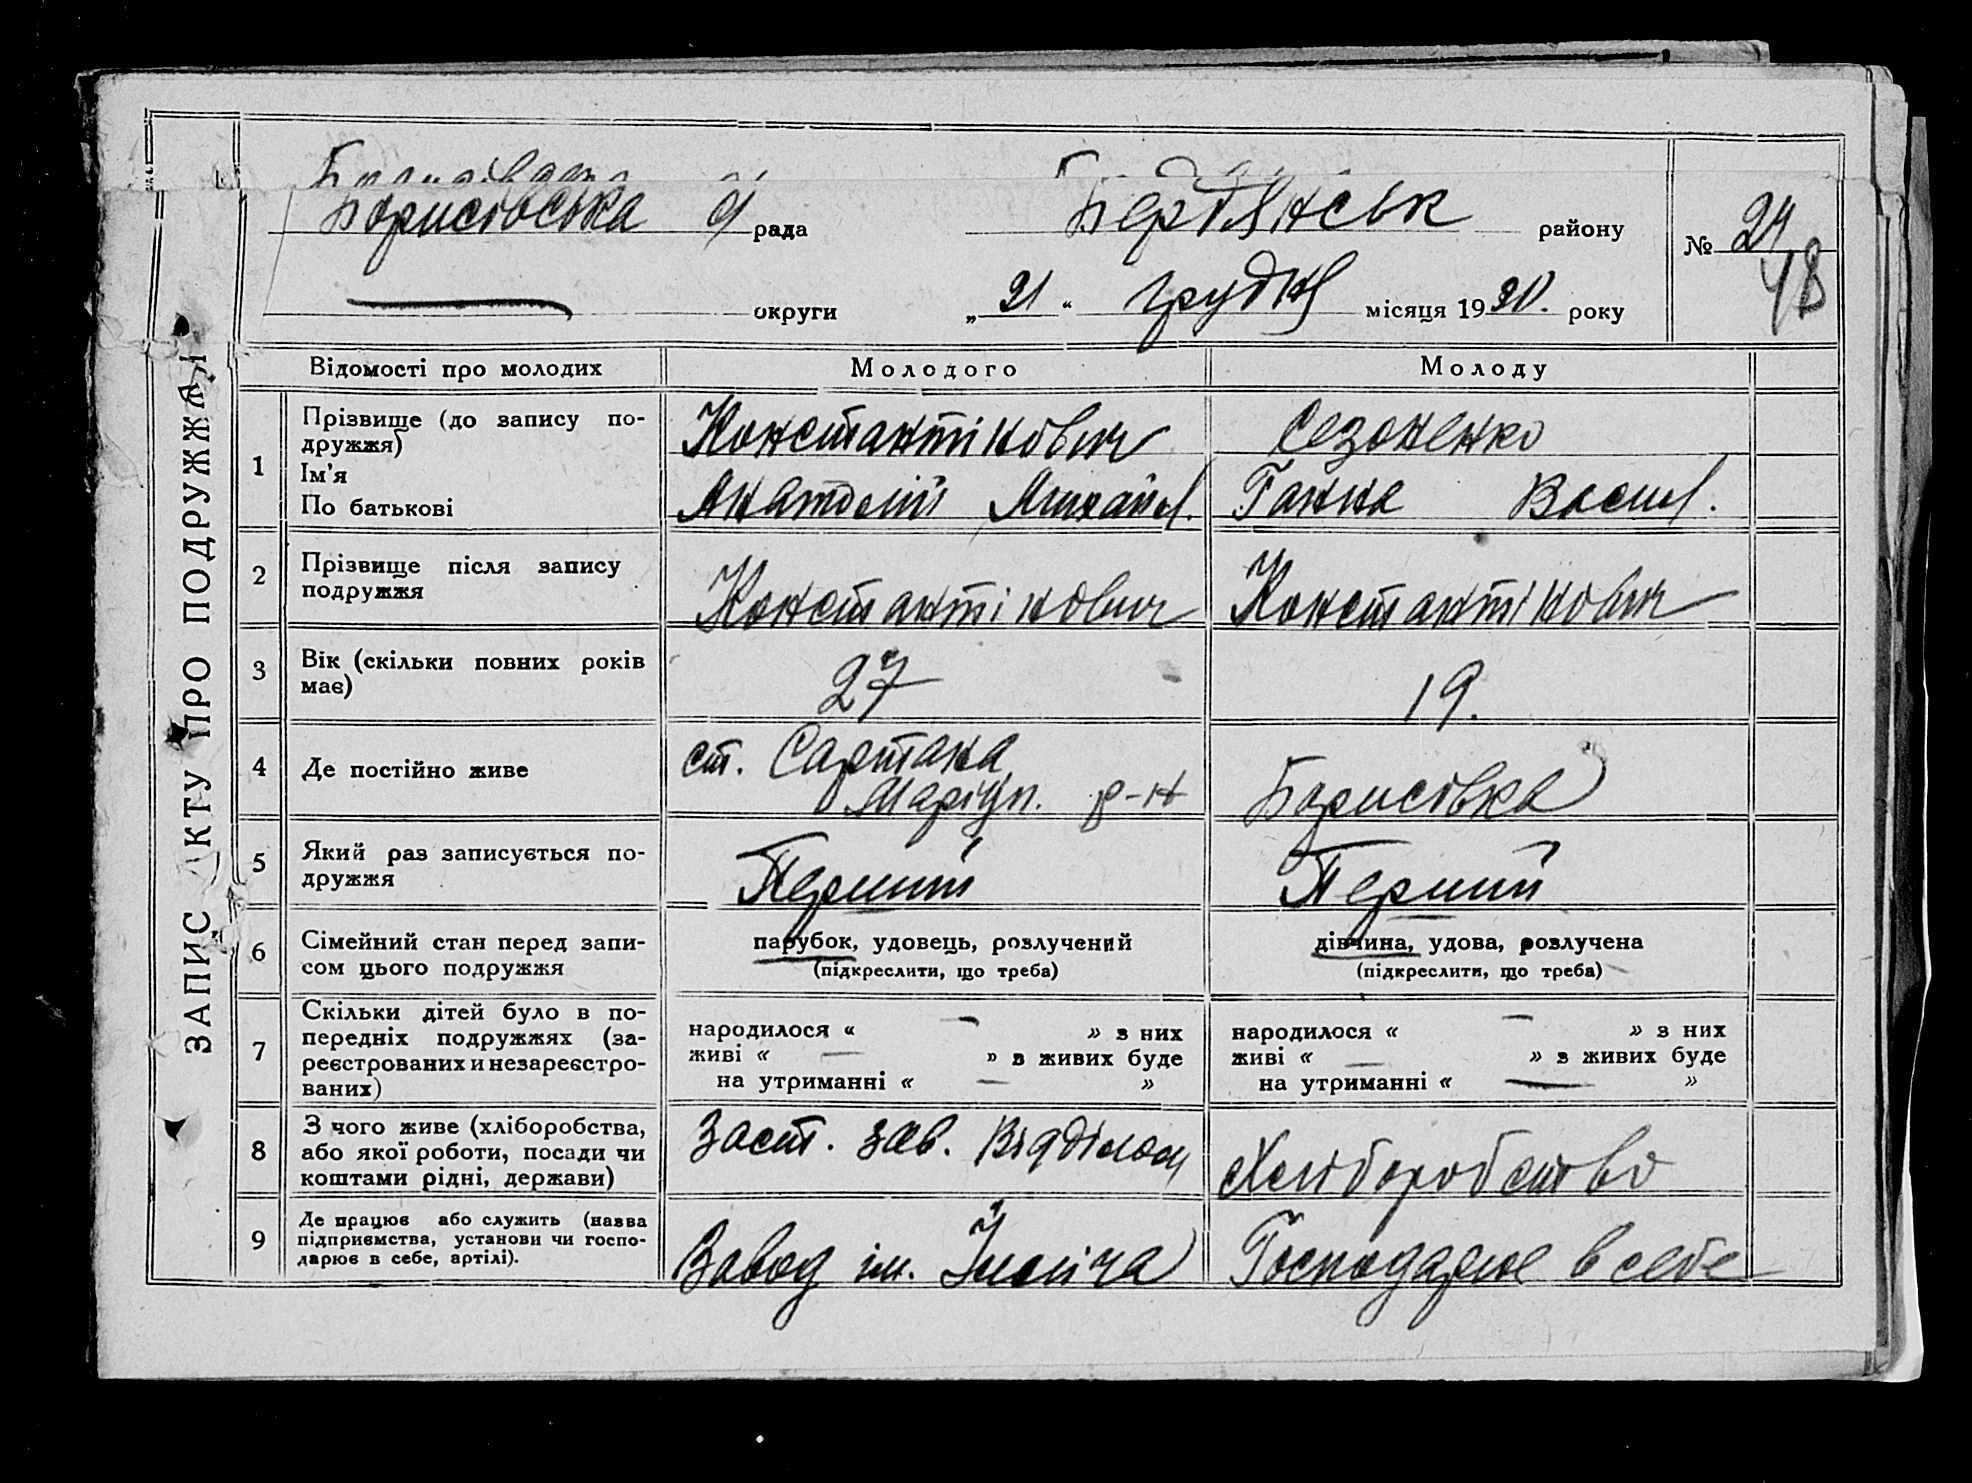 ЗАПИС АКТУ ПРО ПОДРУЖЖА
Борисівська рада Бердянськ району № 24
48
округи „21“ грудня місяця 19 року
Відомості про молодих Молодого Молоду
1 Прізвище (до запису по-
дружжя) Константінович Сезоненко
Ім'я
По батькові Анатолій Михайл. Ганна Васил.
2 Прізвище після запису
подружжя Константінович Константінович
3 Вік (скільки повних років
має) 27 19.
4 Де постійно живе ст. Сартана
Маріуп. р-н Борисівка
5 Який раз записується по-
дружжя Перший Перший
6 Сімейний стан перед запи-
сом цього подружжя
парубок, удовець, розлучений дівчина, удова, розлучена
(підкреслити, що треба) (підкреслити, що треба)
7 Скільки дітей було в по-
передніх подружжях (за-
реєстрованих и незареєстро-
ваних)
народилося « — » з них народилося « — » з них
живі « — » в живих буде живі « — » з живих буде
на утриманні « — » на утриманні « — »
8 З чого живе (хліборобства,
або якої роботи, посади чи
коштами рідні, держави)
Заст. зав. Відділом Хліборобство
9 Де працює або служить (назва
підприємства, установи чи госпо-
дарює в себе, артілі).
Завод ім. Ілліча Господарює в себе